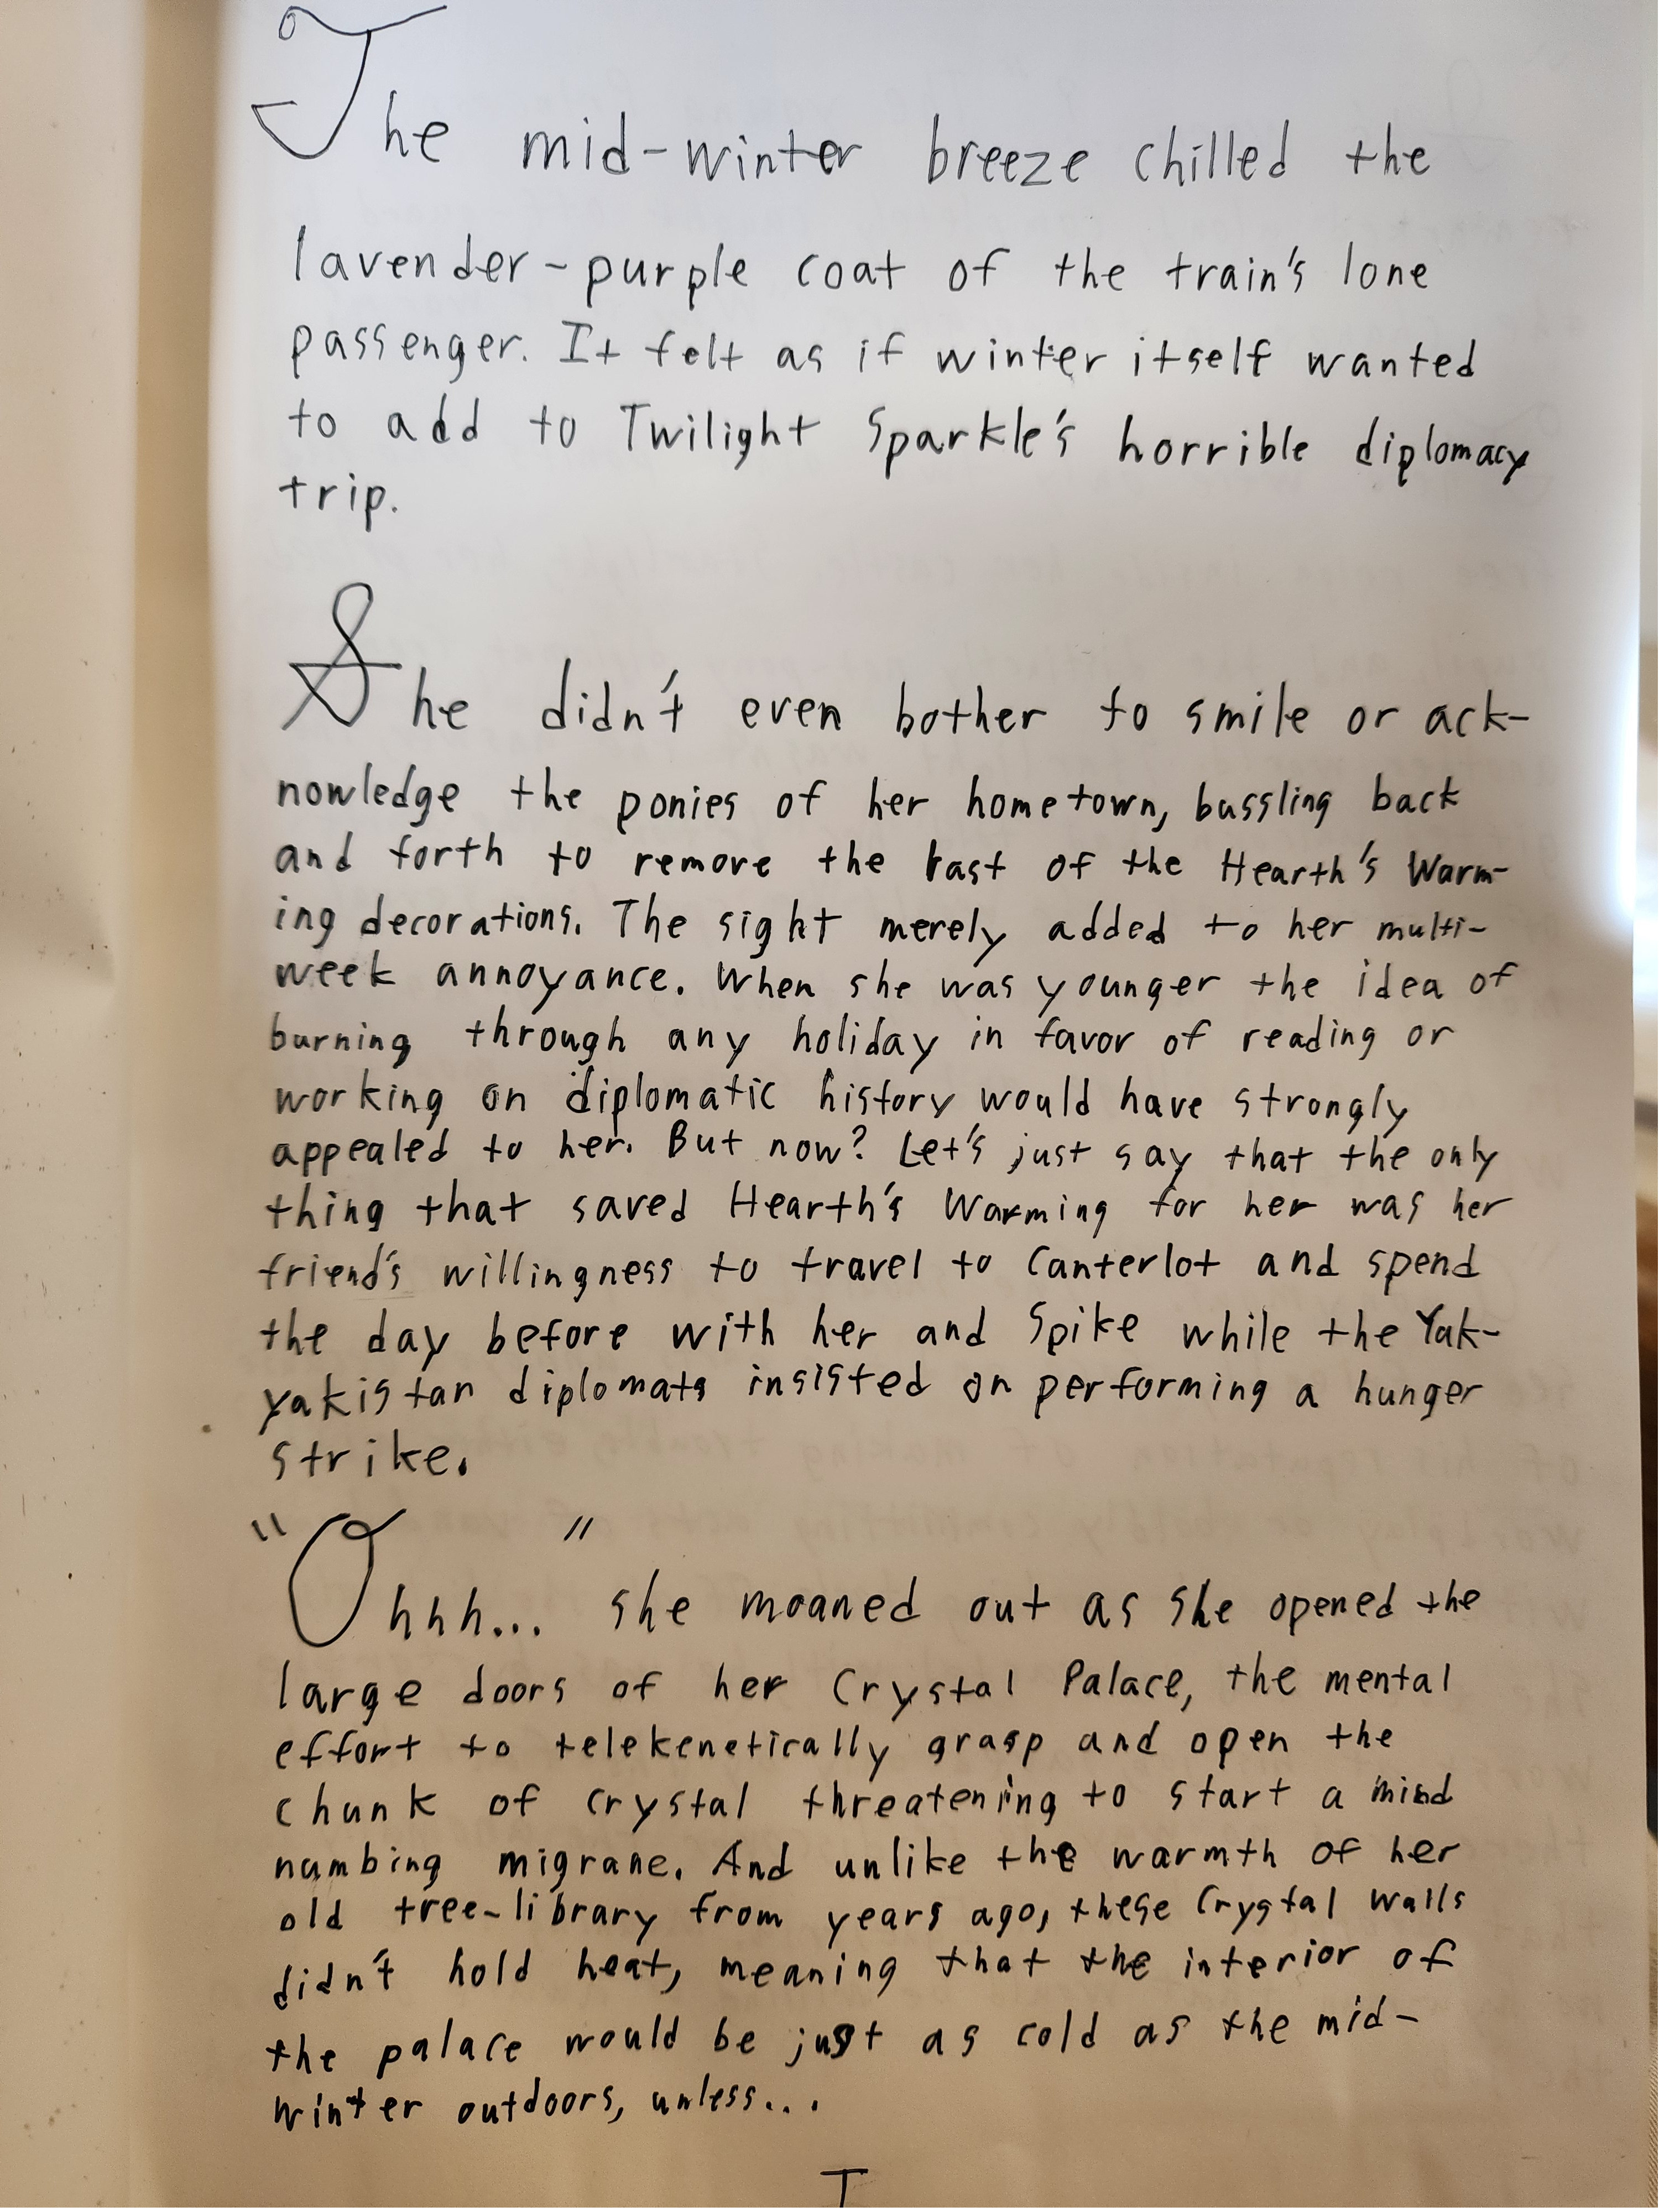 The mid-winter breeze chilled the
lavender-purple coat of the train's lone
passenger. It felt as if winter itself wanted
to add to Twilight Sparkle's horrible diplomacy
trip.
She didn't even bother to smile or ack-
nowledge the ponies of her hometown, bussling back
and forth to remove the last of the Hearth's Warm-
ing decorations. The sight merely added to her multi-
week annoyance. When she was younger the idea of
burning through any holiday in favor of reading or
working on diplomatic history would have strongly
appealed to her. But now? Let's just say that the only
thing that saved Hearth's Warming for her was her
friend's willingness to travel to Canterlot and spend
the day before with her and Spike while the Yak-
yakistan diplomats insisted on performing a hunger
strike.
"Ohhh..." she moaned out as she opened the
large doors of her Crystal Palace, the mental
effort to telekenetically grasp and open the
chunk of crystal threatening to start a mind
numbing migrane. And unlike the warmth of her
old tree-library from years ago, these Crystal walls
didn't hold heat, meaning that the interior of
the palace would be just as cold as the mid-
winter outdoors, unless...
I